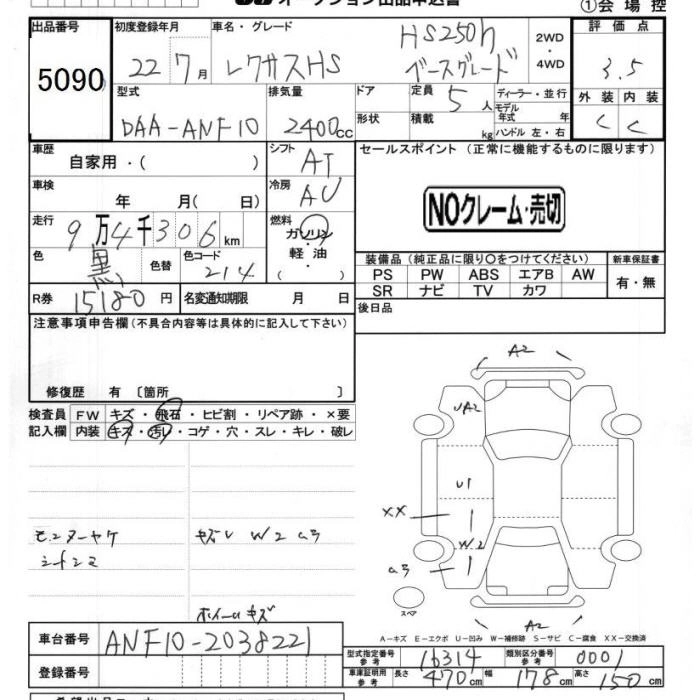 オークション出品申込書
①会場控
出品番号 初度登録年月 車名・グレード 評価点
5090 22 7月 レクサスHS HS250h ベースグレード 2WD ・ 4WD 3.5
型式 排気量 ドア 定員 5人 ディーラー・並行 外装 内装
DAA-ANF10 2400cc 形状 積載 kg モデル年式 年 ハンドル 左・右 C C
車歴 自家用・( ) シフト AT セールスポイント(正常に機能するものに限ります)
車検 年 月( 日) 冷房 AU
NOクレーム・売切
走行 9万4千306km 燃料 ガソリン・軽油
色 黒 色替 色コード 214 装備品(純正品に限り○をつけてください) 新車保証書
PS PW ABS エアB AW 有・無
SR ナビ TV カワ
R券 15180円 名変通知期限 月 日 後日品
注意事項申告欄(不具合内容等は具体的に記入して下さい)
修復歴 有 〔箇所 〕
検査員 FW キズ・飛石・ヒビ割・リペア跡・×要
記入欄 内装 キズ・汚レ・コゲ・穴・スレ・キレ・破レ
A2
UA2
U1
XX
W2
A2
スペア
キズU W2
ホイールキズ
A-キズ E-エクボ U-凹み W-補修跡 S-サビ C-腐食 XX-交換済
車台番号 ANF10-2038221
型式指定番号 参考 16314 類別区分番号 参考 0001
登録番号 車庫証明用 参考 長さ 470cm 幅 178cm 高さ 150cm